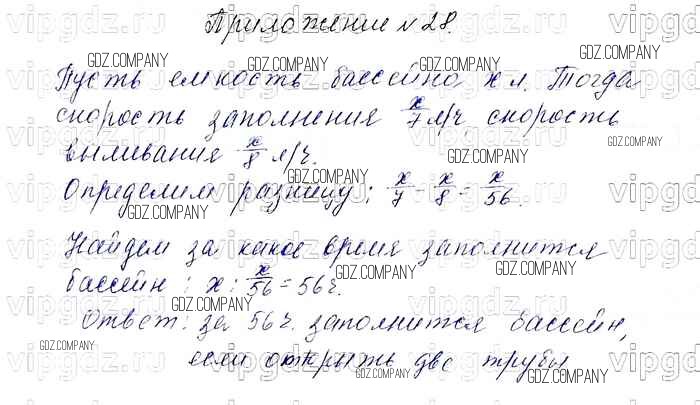 Приложение №28.
Пусть емкость бассейна x л. Тогда
скорость заполнения x/7 л/ч, скорость
выливания x/8 л/ч.
Определим разницу: x/7 - x/8 = x/56.
Найдем за какое время заполнится
бассейн: x : x/56 = 56 ч.
Ответ: за 56 ч. заполнится бассейн,
если открыть две трубы